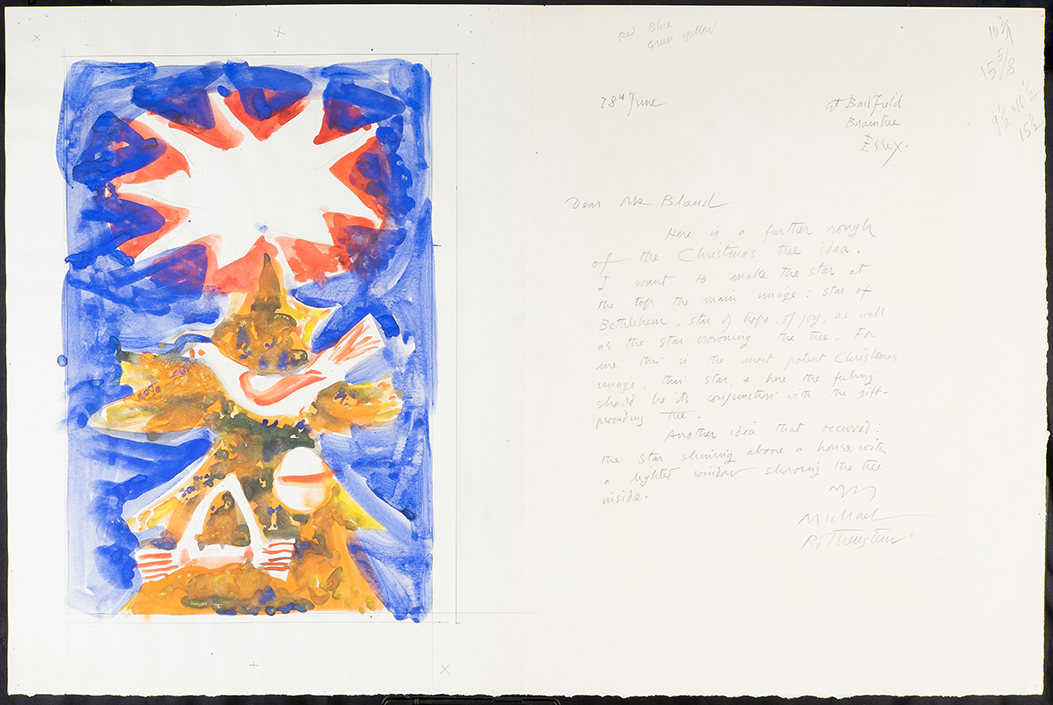 Red Blue
Green yellow
10 3/4
15 5/8
9 1/2 x 10 1/2
15 1/2
28th June
Gt Bardfield
Braintree
Essex.
Dear Mr Bland
Here is a further rough
of the Christmas tree idea.
I want to make the star at
the top the main image: star of
Bethlehem, star of hope, of joy, as well
as the star crowning the tree. For
me this is the most potent Christmas
image, this star, & here the feeling
should be its conjunction with the gift-
providing tree.
Another idea that occurred:
the star shining above a house with
a lighted window showing the tree
inside.
Michael
Rothenstein